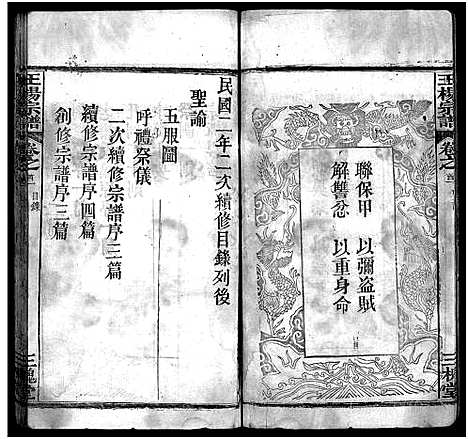 聯保甲　以彌盗賊
解讐忿　以重身命
民國二年二次續修目錄列後
聖諭
五服圖
呼禮祭儀
二次續修宗譜序三篇
續修宗譜序四篇
創修宗譜序三篇
王楊宗譜
卷之
目錄
三槐堂
王楊宗譜
卷之